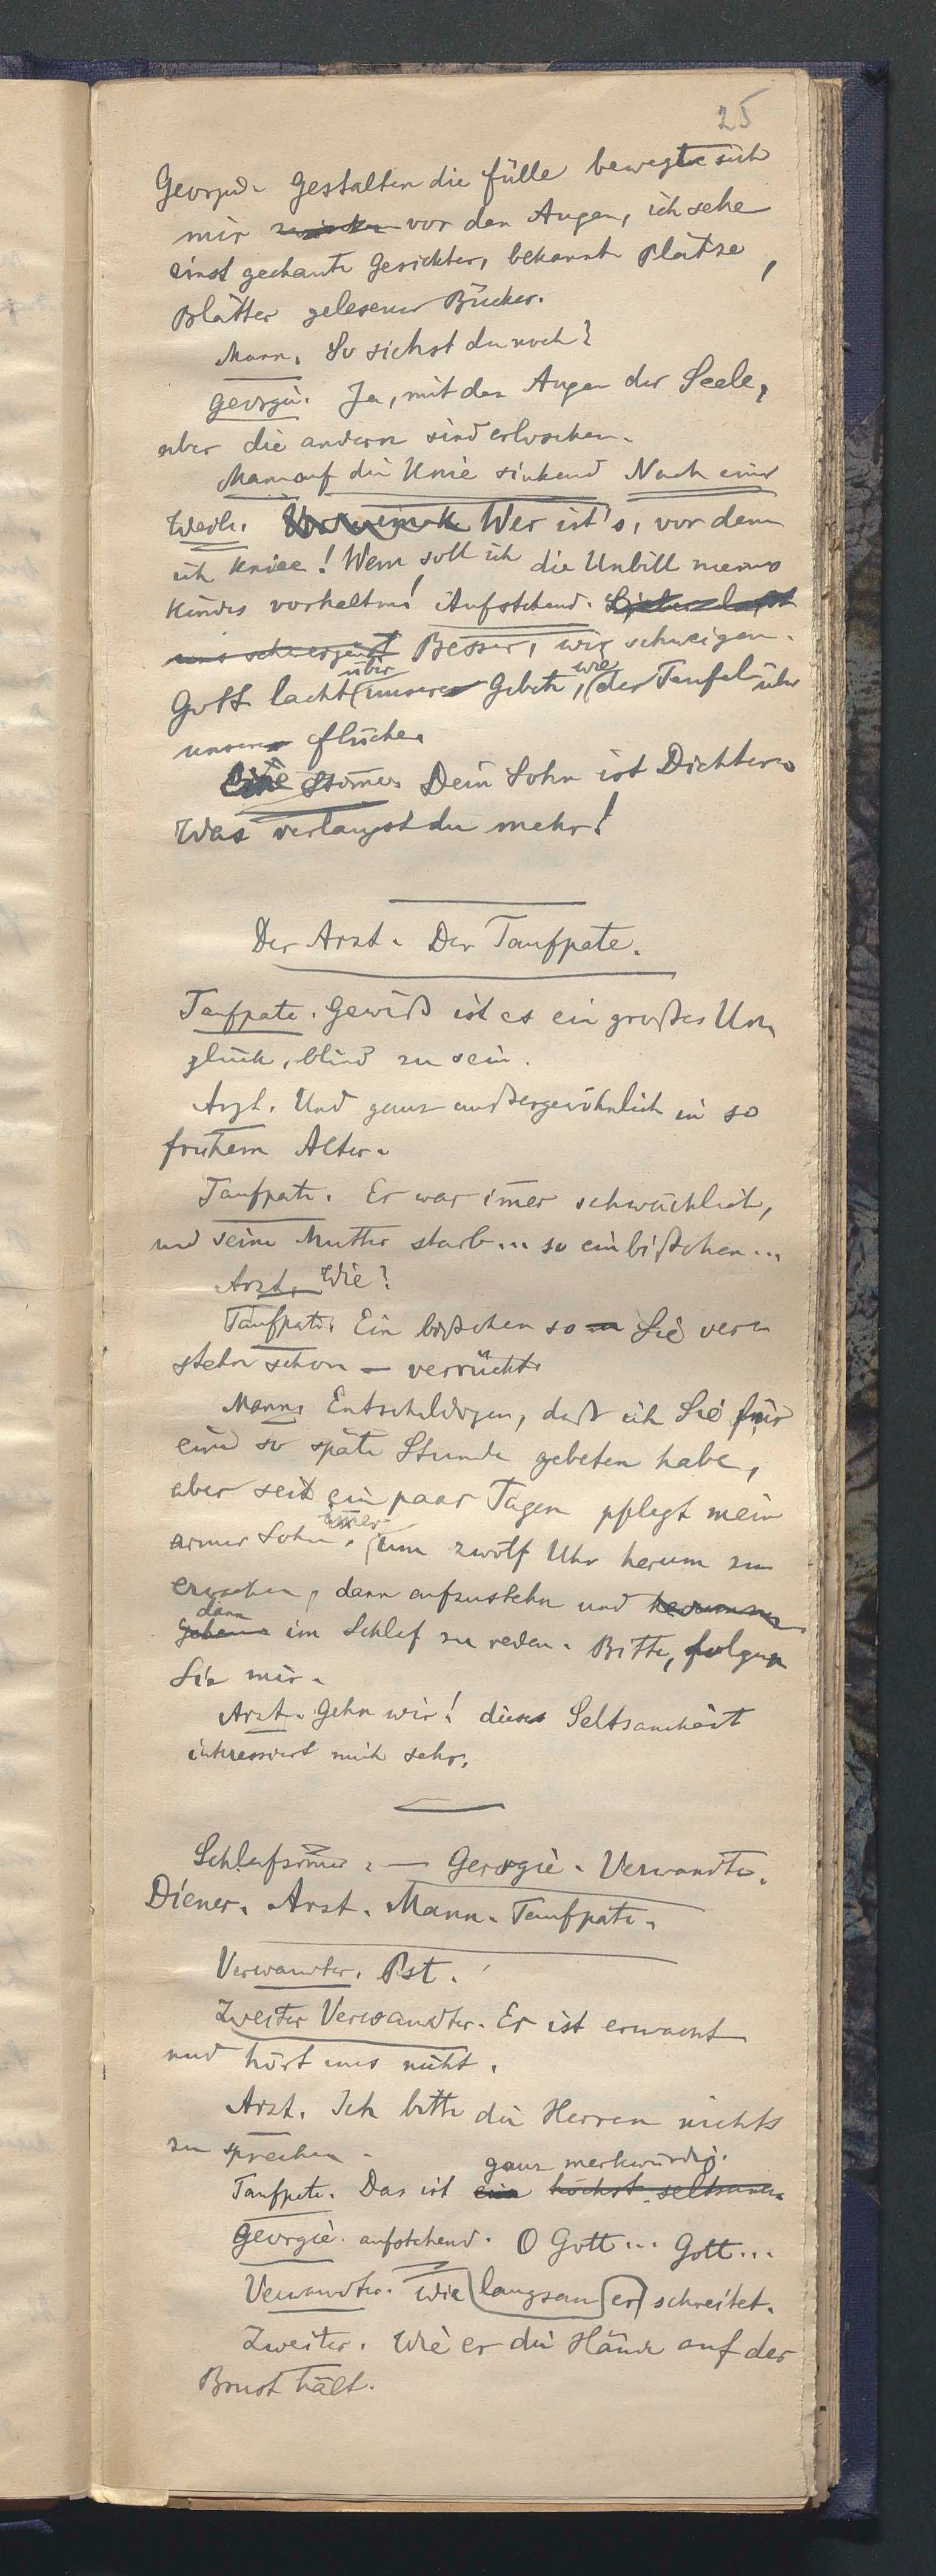 25
Georgie. Gestalten die Fülle bewegte sich
mir vor den Augen, ich sehe
einst gekannte Gesichter, bekannte Plätze,
Blätter gelesener Bücher.
Mann. So siehst du noch?
Georgie. Ja, mit den Augen der Seele,
aber die andern sind erloschen.
Mann auf die Knie sinkend Nach einer
Weile. Wer ist's, vor dem
ich kniee! Wem soll ich die Unbill meines
Kindes vorhalten! Aufstehend. Lieber lasst
uns schweigen Besser, wir schweigen.
Gott lacht über unsere Gebete, wie der Teufel über
unsere Flüche.
Eine Stimme. Dein Sohn ist Dichter.
Was verlangst du mehr!
Der Arzt. Der Taufpate.
Taufpate. Gewiß ist es ein großes Un-
glück, blind zu sein.
Arzt. Und ganz außergewöhnlich in so
frühem Alter.
Taufpate. Er war im̄er schwächlich,
und seine Mutter starb... so ein bißchen...
Arzt. Wie?
Taufpate. Ein bißchen so Sie ver-
stehn schon — verrückt.
Mann. Entschuldigen, daß ich Sie für
eine so späte Stunde gebeten habe,
aber seit ein paar Tagen pflegt mein
armer Sohn, im̄er um zwölf Uhr herum zu
erwachen, dann aufzustehn und herumzu
gehen dann im Schlaf zu reden. Bitte, folgen
Sie mir.
Arzt. Gehn wir! diese Seltsamkeit
interessiert mich sehr.
Schlafzim̄er. — Georgie. Verwandte.
Diener. Arzt. Mann. Taufpate.
Verwandter. Pst.
Zweiter Verwandter. Er ist erwacht
und hört uns nicht.
Arzt. Ich bitte die Herren nichts
zu sprechen.
ganz merkwürdig.
Taufpate. Das ist ein höchst seltsames
Georgie. aufstehend. O Gott... Gott...
Verwandter. Wie langsam er schreitet.
Zweiter. Wie er die Hände auf der
Brust hält.